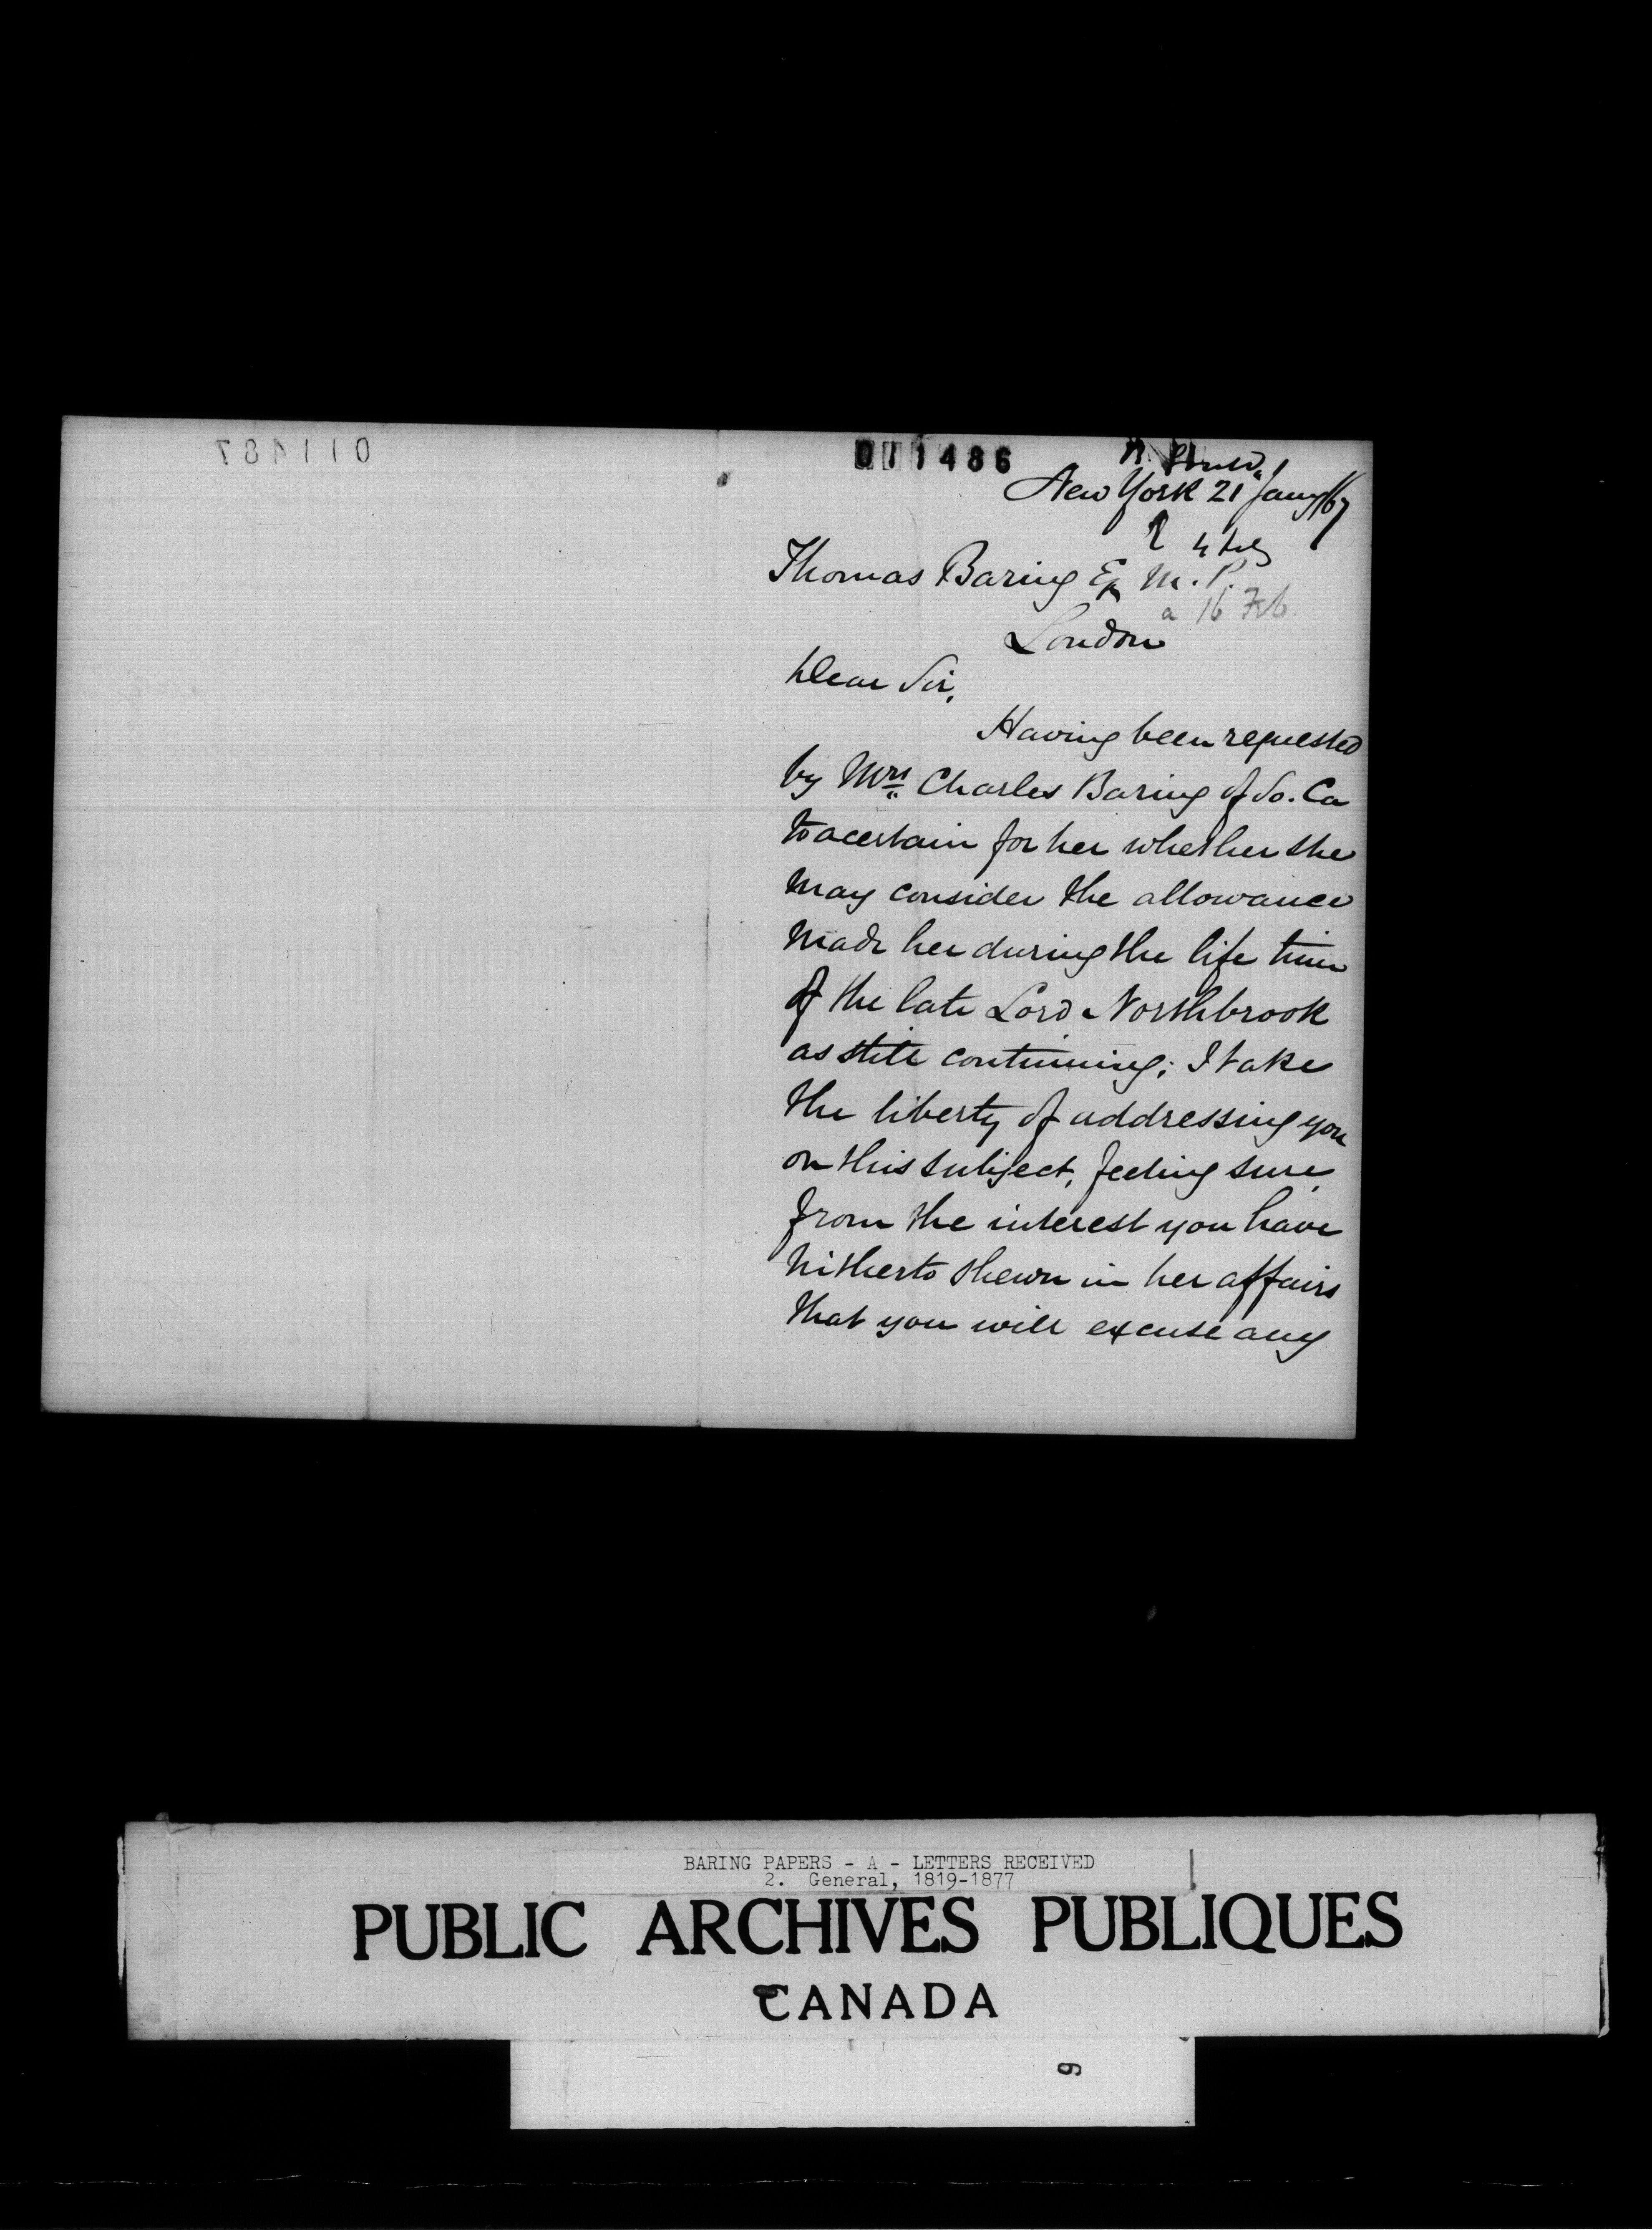 011487
011486
New York 21 Jany/67
R 4 Feb
Thomas Baring Esq M. P.
a 16 Feb.
London
Dear Sir,
Having been requested
by Mrs Charles Baring of So. Ca
to acertain for her whether she
may consider the allowance
made her during the life time
of the late Lord Northbrook
as still continuing; I take
the liberty of addressing you
on this subject, feeling sure,
from the interest you have
hitherto shewn in her affairs
that you will excuse any
BARING PAPERS - A - LETTERS RECEIVED
2. General, 1819-1877
PUBLIC ARCHIVES PUBLIQUES
CANADA
9